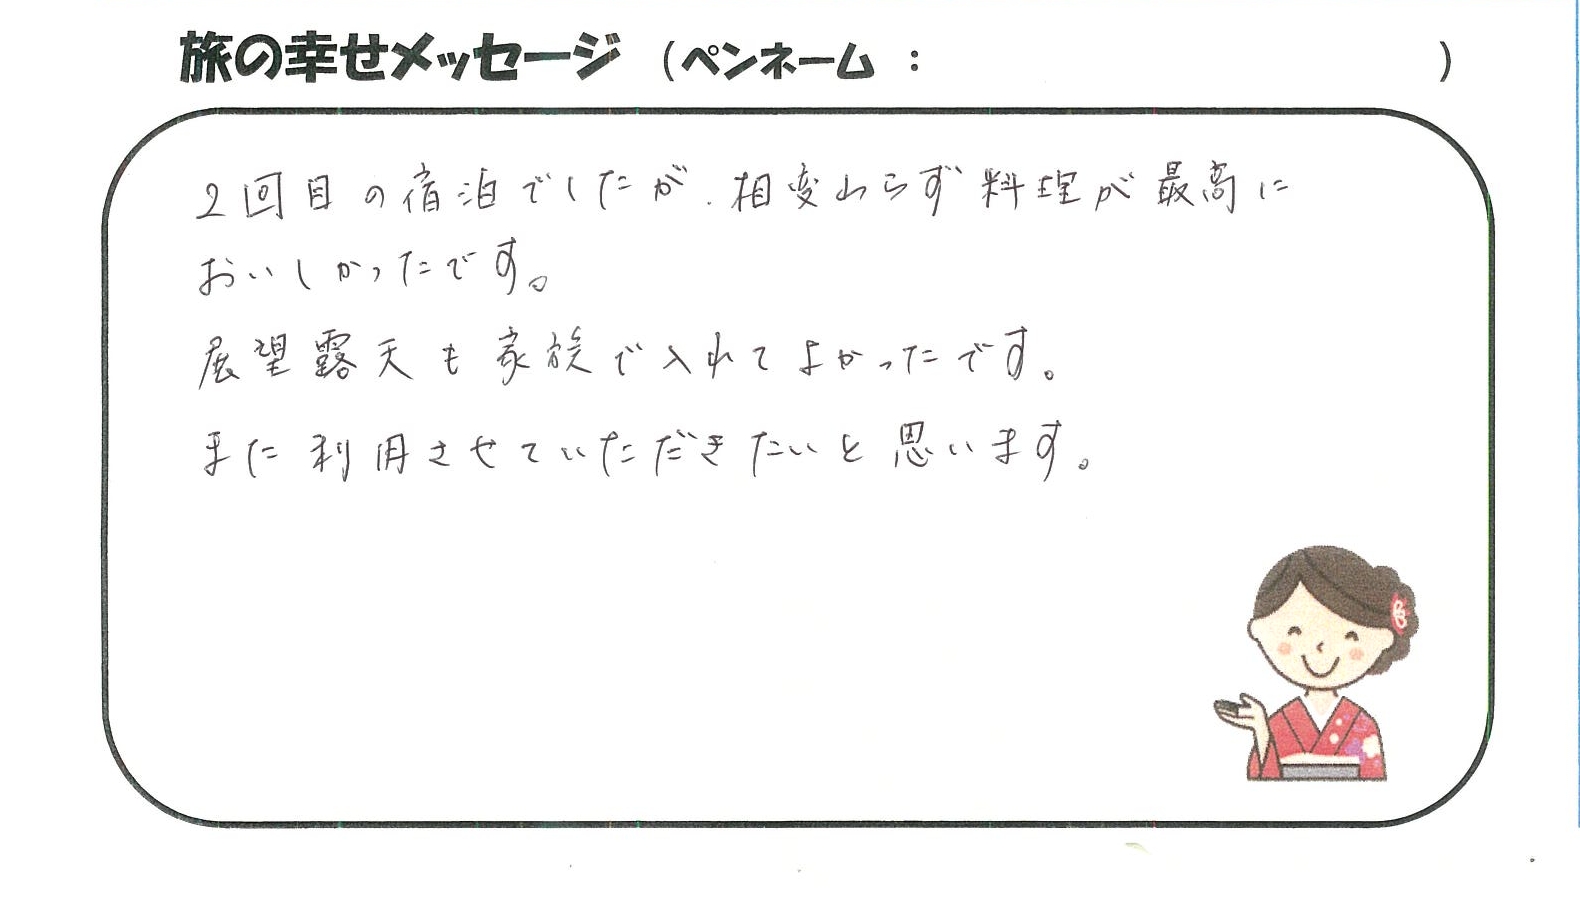 旅の幸せメッセージ （ペンネーム ： ）
2回目の宿泊でしたが、相変わらず料理が最高に
おいしかったです。
展望露天も家族で入れてよかったです。
また利用させていただきたいと思います。